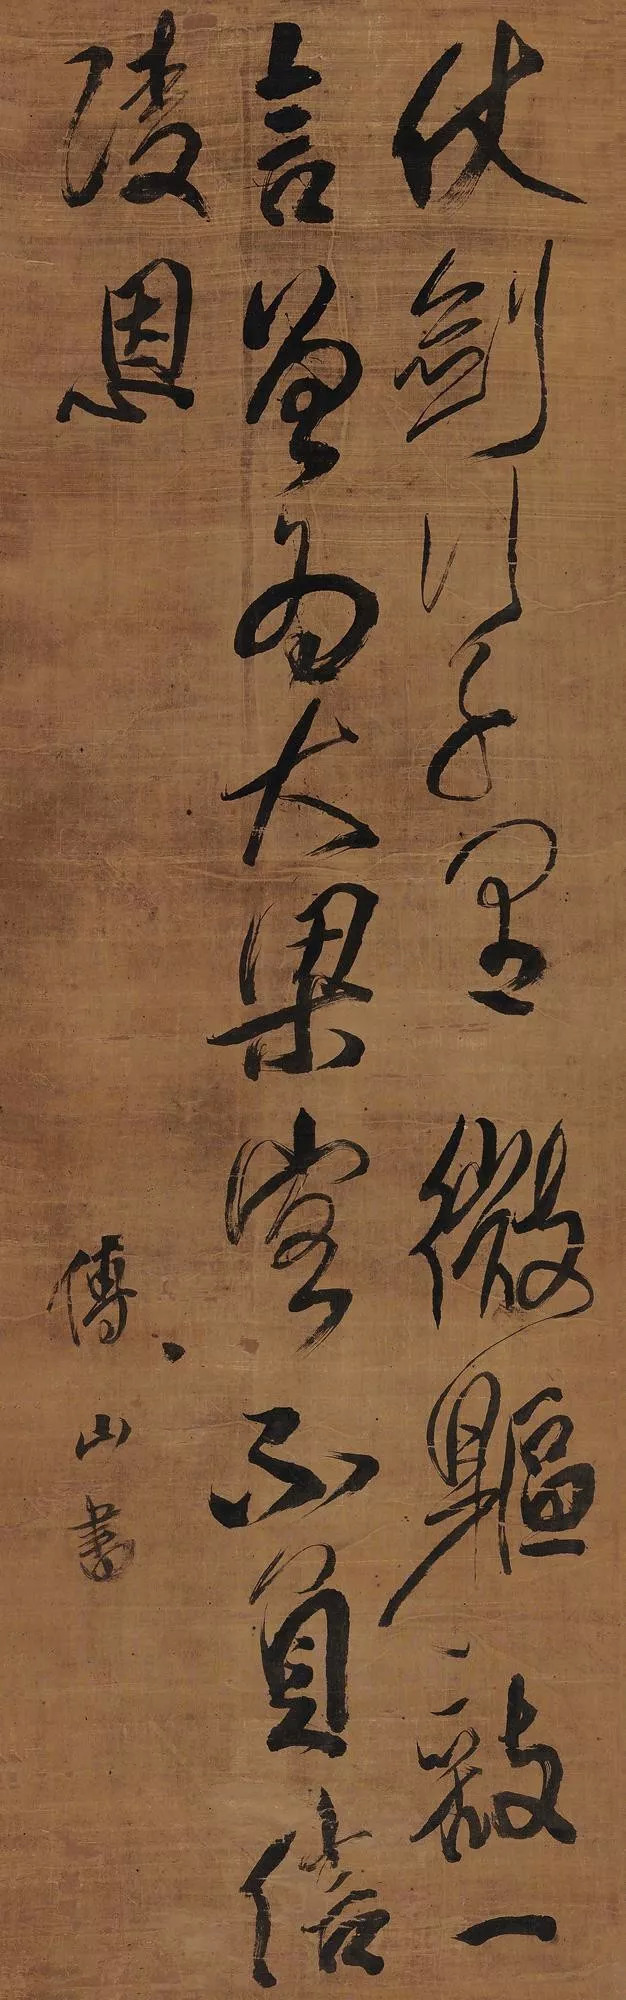 仗劍行千里微軀敢一
言曾為大梁客不負信
陵恩
傅山書